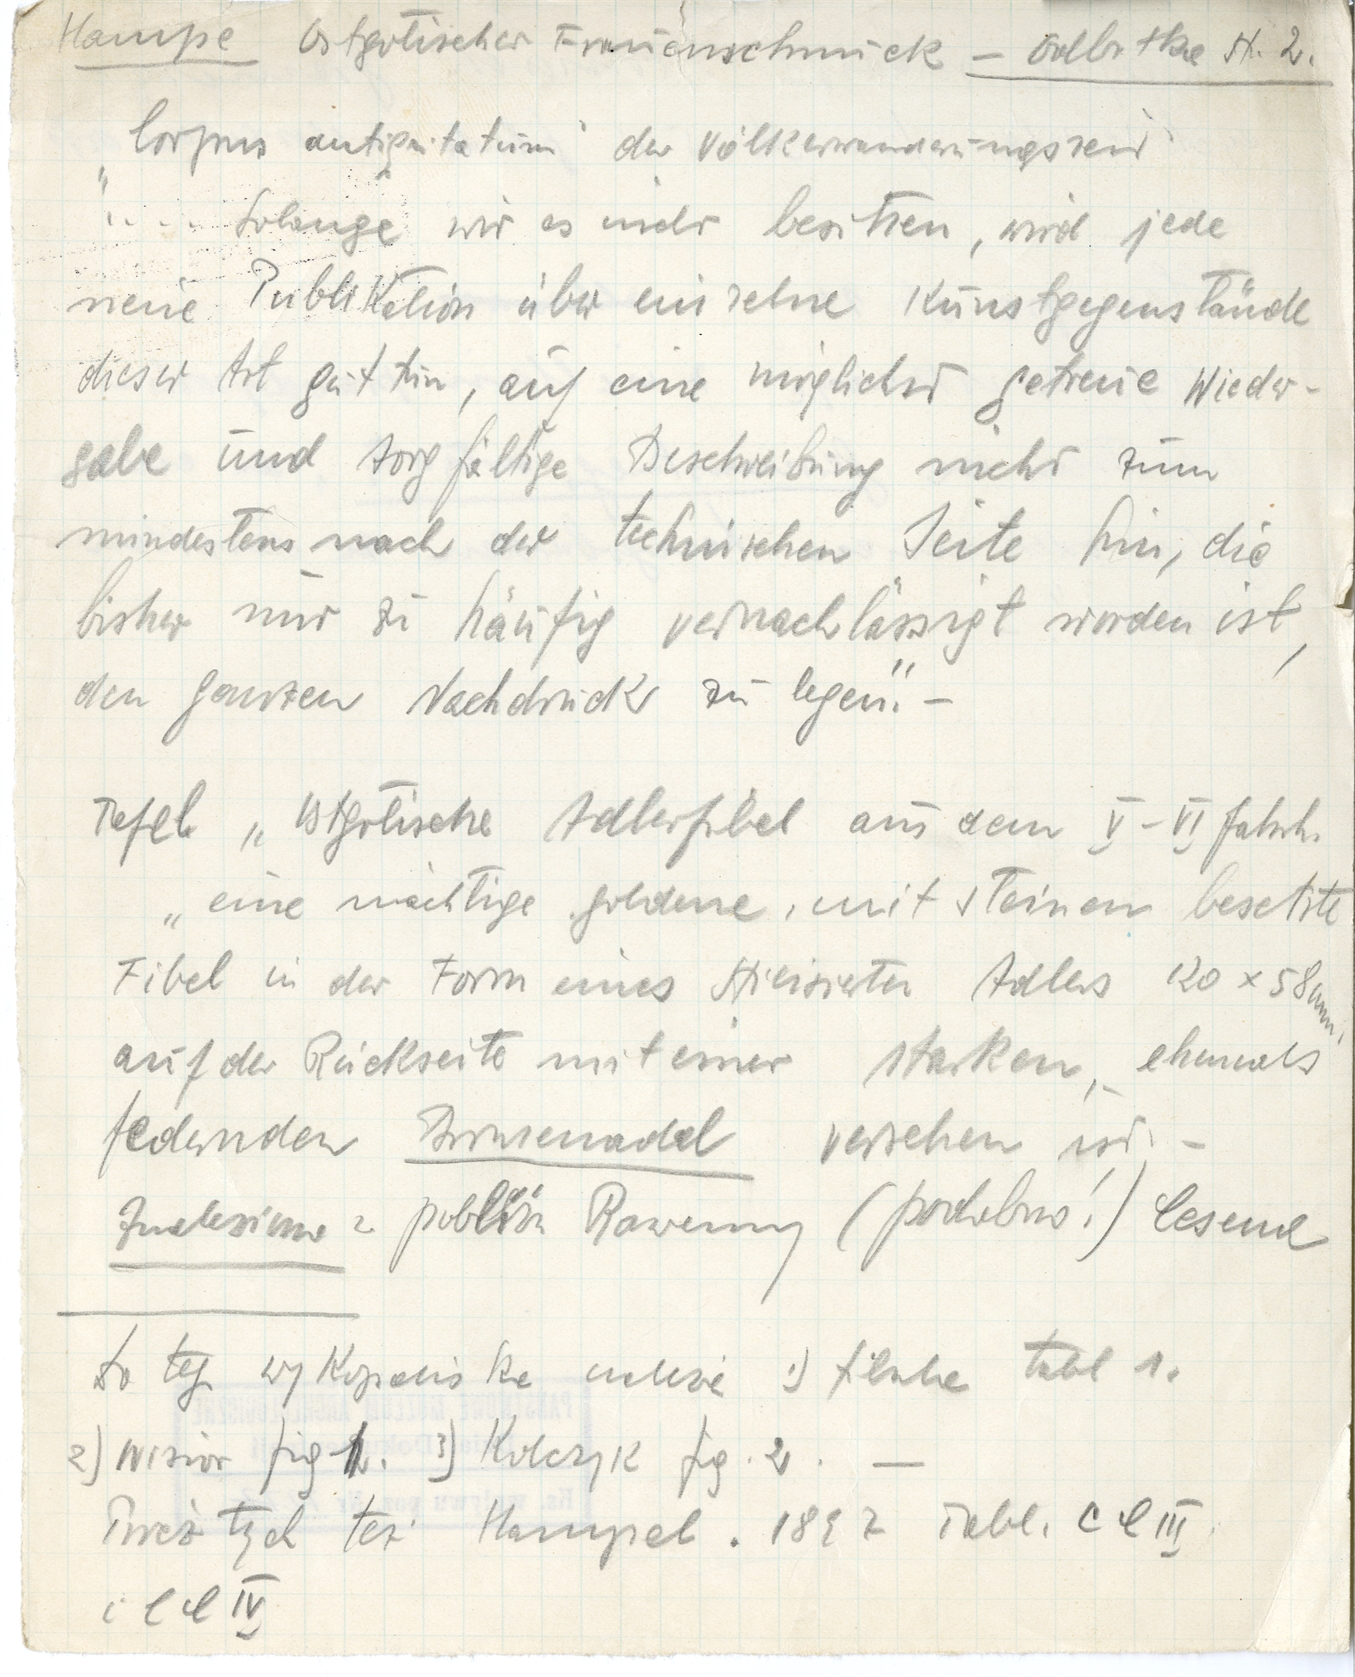 Hampe Ostgotischer Frauenschmuck – odbitka st. 2.
"Corpus antiquitatum" der Völkerwanderungszeit
".... Solange wir es nicht besitzen, wird jede
neue Publikation über einzelne Kunstgegenstände
dieser Art gut tun, auf eine möglichst getreue Wieder-
gabe und sorgfältige Beschreibung nicht zum
mindestens nach der technischen Seite hin, die
bisher nur zu häufig vernachlässigt worden ist,
den ganzen Nachdruck zu legen". –
Tafel „Ostgotische Adlerfibel aus dem V–VI Jahrh.
„eine mächtige goldene, mit Steinen besetzte
Fibel in der Form eines stilisierten Adlers 120 x 58 mm,
auf der Rückseite mit einer starken, ehemals
federnden Bronzenadel versehen ist. –
Znalezione z pobliża Rawenny (podobno!) Cesena
Do tej wykopaliska należi 1) fibula tabl 1.
2) wisior fig 1. 3) Kolczyk fig. 2. —
Prócz tych też Hampel. 1897 Tabl. C C III
i C C IV